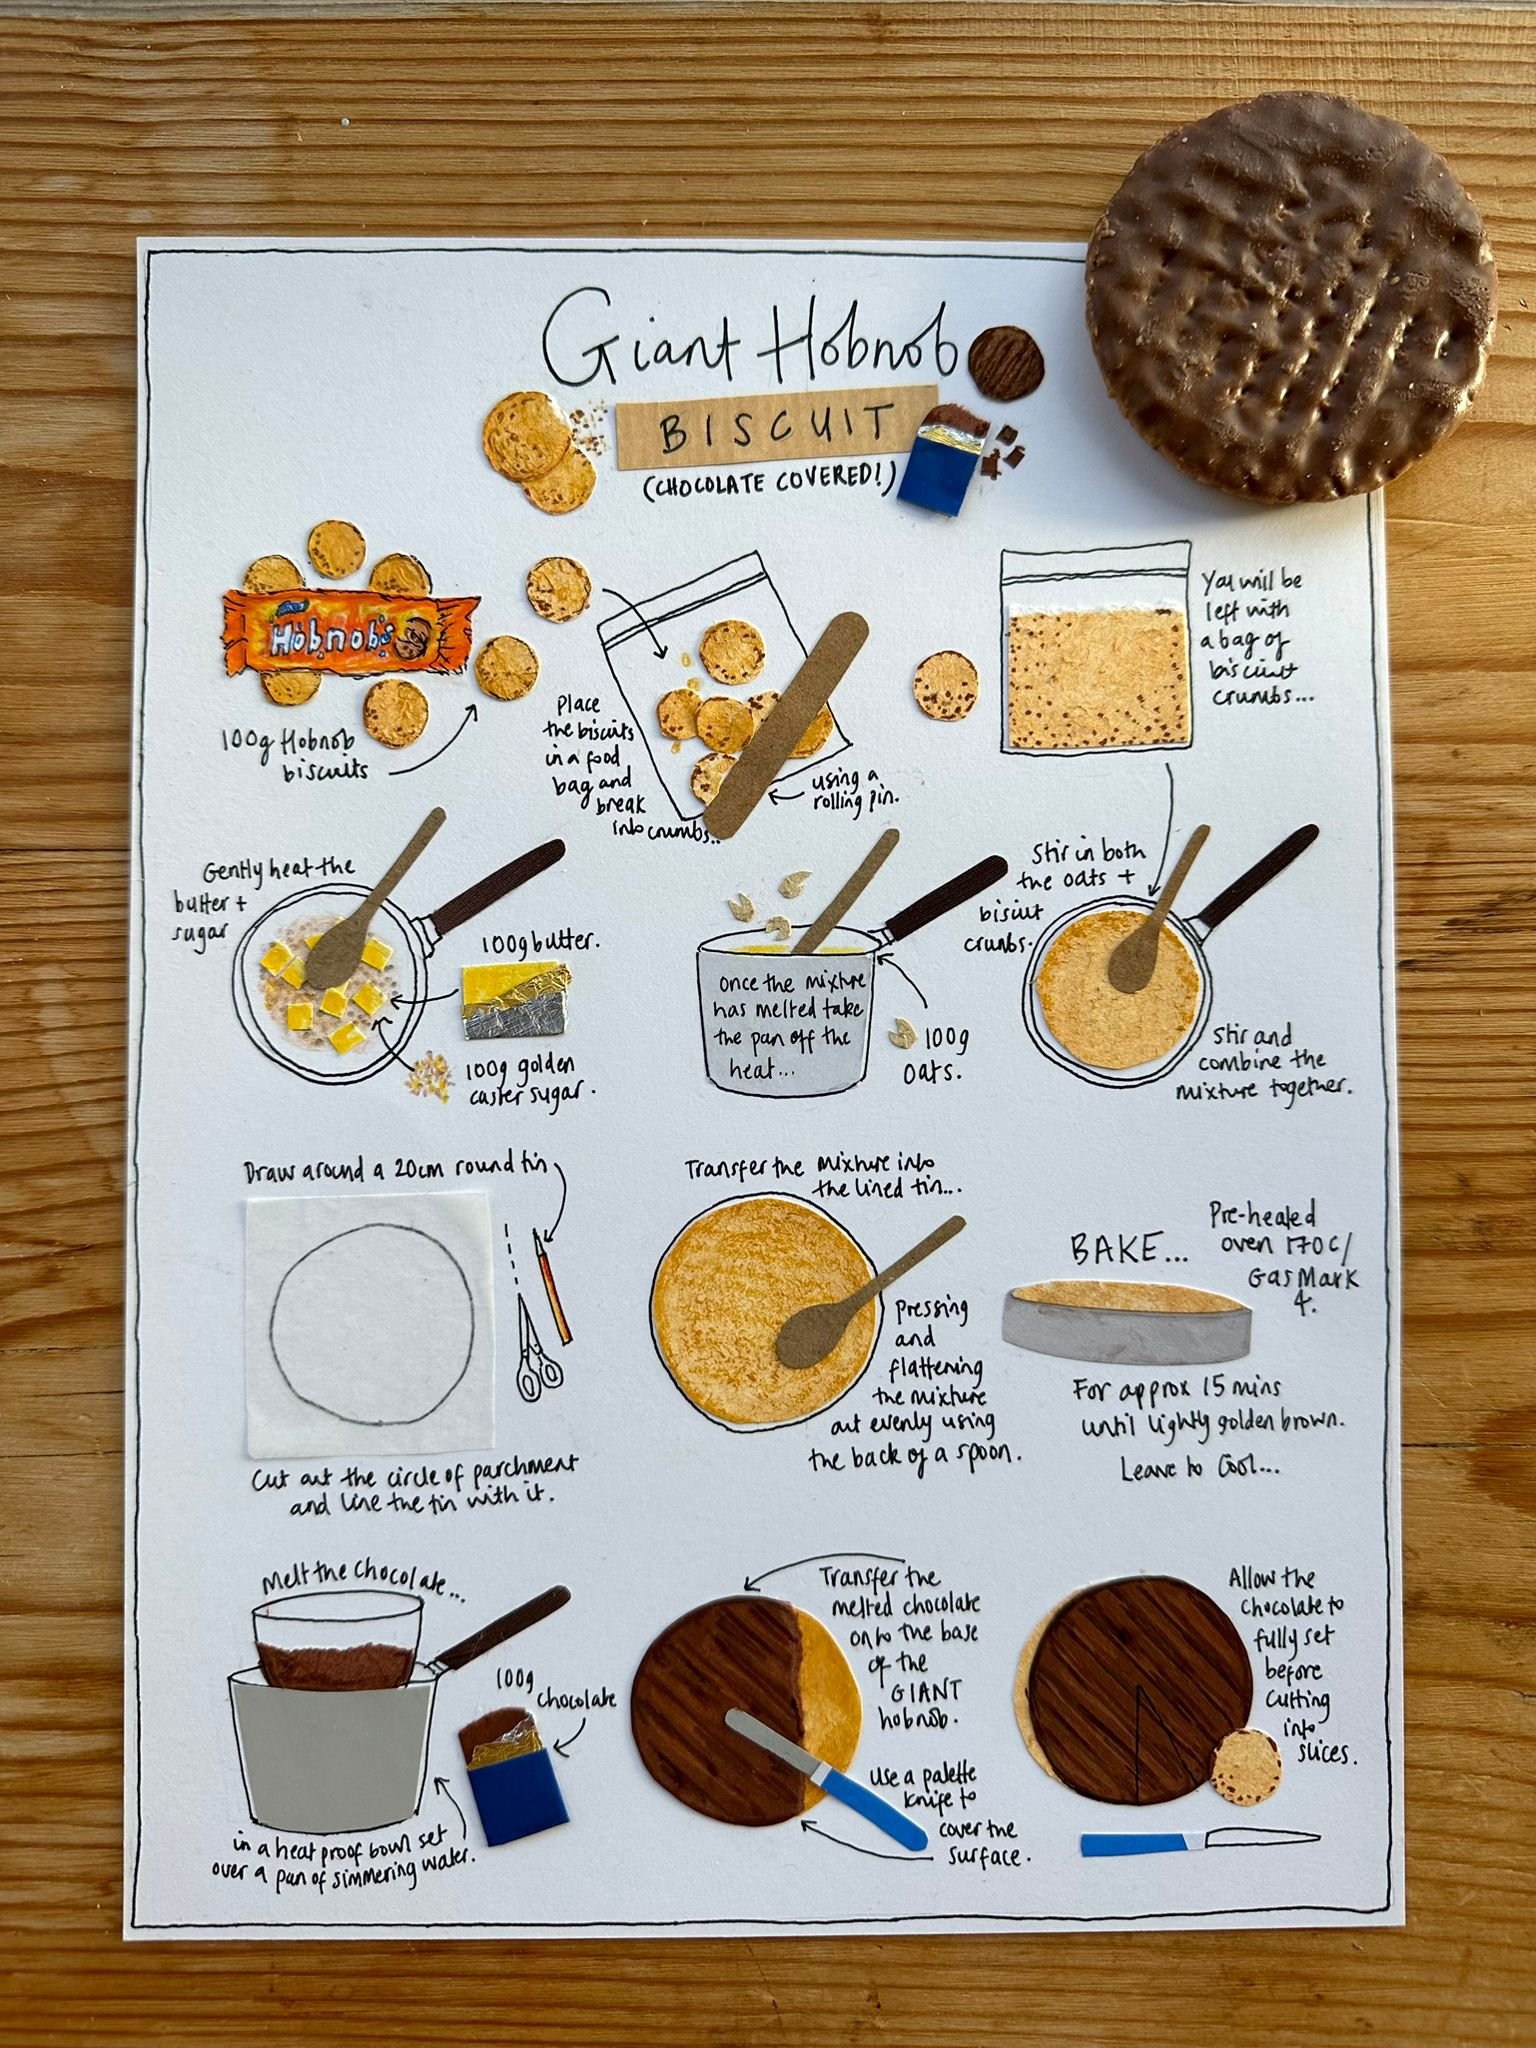 Giant Hobnob
BISCUIT
(CHOCOLATE COVERED!)
Hobnobs
100g Hobnob
biscuits
Place
the biscuits
in a food
bag and
break
into crumbs..
using a
rolling pin.
You will be
left with
a bag of
biscuit
crumbs...
Gently heat the
butter +
sugar
100g butter.
100g golden
caster sugar.
Once the mixture
has melted take
the pan off the
heat...
100g
oats.
Stir in both
the oats +
biscuit
crumbs.
Stir and
combine the
mixture together.
Draw around a 20cm round tin
Cut out the circle of parchment
and line the tin with it.
Transfer the mixture into
the lined tin...
pressing
and
flattening
the mixture
out evenly using
the back of a spoon.
BAKE...
Pre-heated
oven 170C/
Gas Mark
4.
For approx 15 mins
until lightly golden brown.
Leave to Cool...
Melt the chocolate...
100g
chocolate
in a heat proof bowl set
over a pan of simmering water.
Transfer the
melted chocolate
onto the base
of the
GIANT
hobnob.
Use a palette
knife to
cover the
surface.
Allow the
chocolate to
fully set
before
cutting
into
slices.